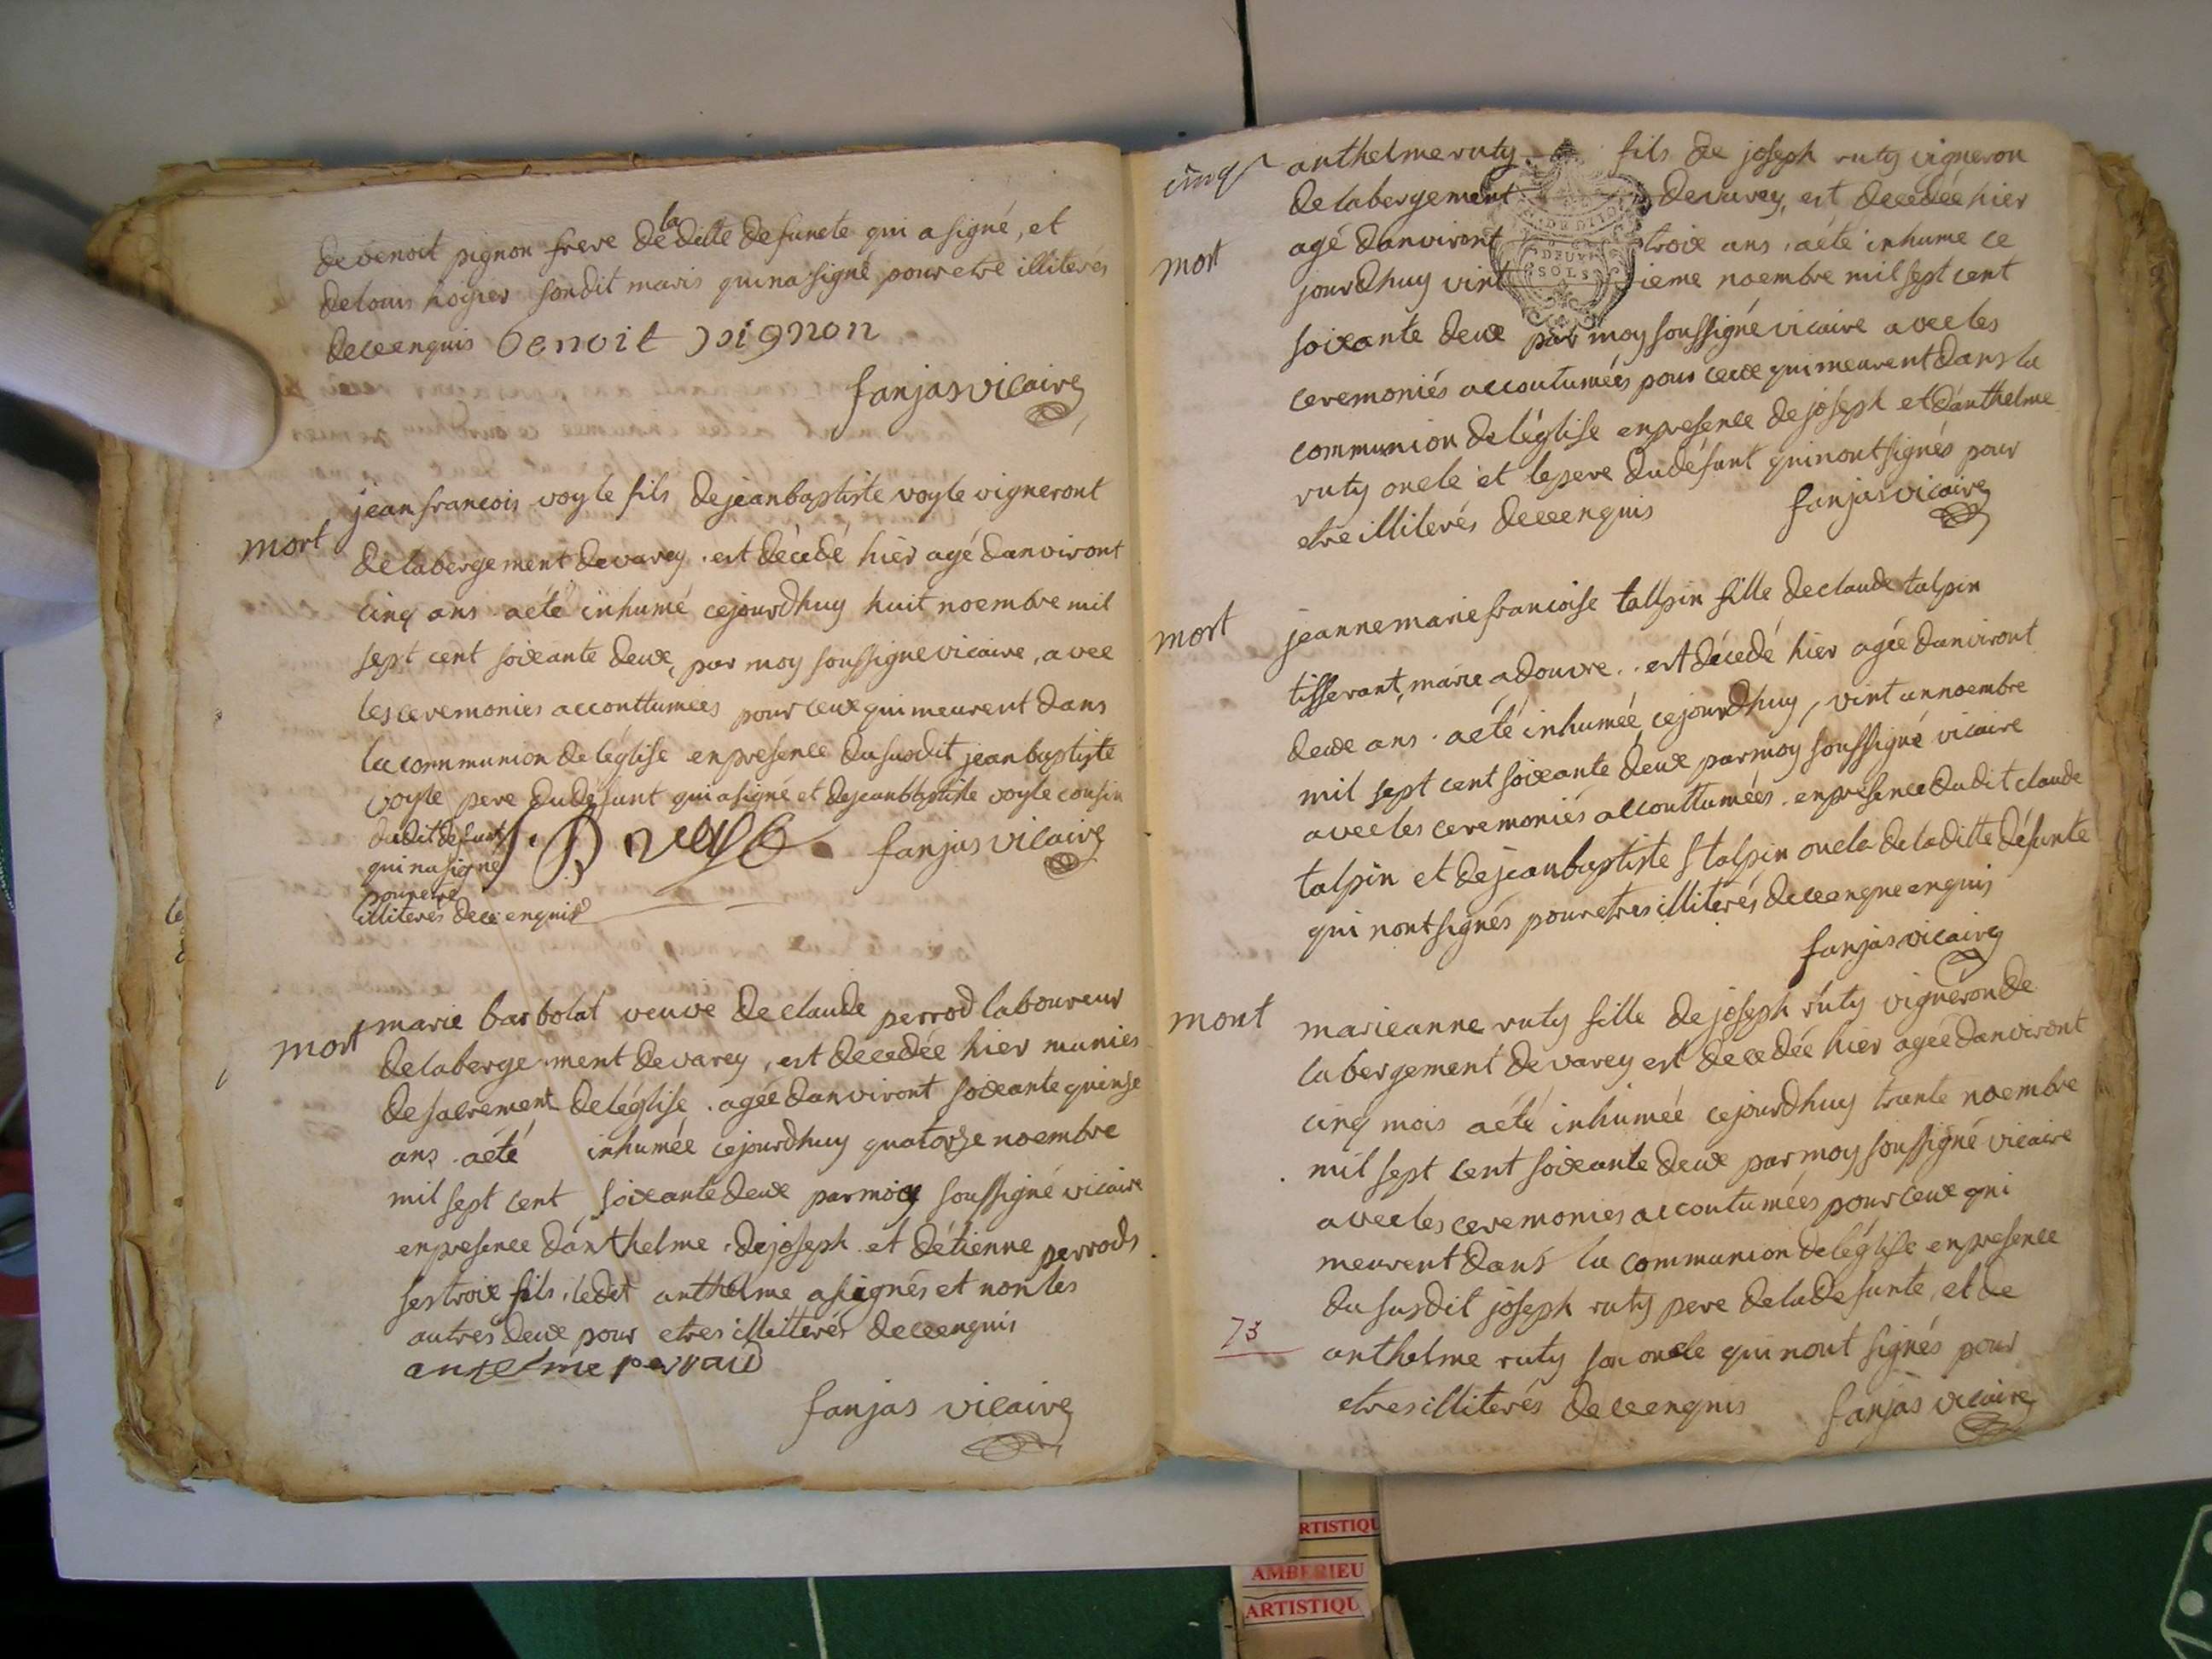 de benoit pignon frere de la ditte defuncte qui a signé, et
de louis hogier son dit maris qui na signé pour etre illiterés
de ce enquis benoit pignon
fanjas vicaire
mort
jean francois voyle fils de jean baptiste voyle vigneront
de labergement de varey . est décédé hier agé danviront
cinq ans . a eté inhumé cejourdhuy huit noembre mil
sept cent soixante deux, par moy soussigné vicaire, avec
les ceremonies accouttumees pour ceux qui meurent dans
la communion de léglise en presence du susdit jean baptiste
voyle pere du défunt qui a signé et de jean baptiste voyle cousin
dudit défunt
qui na signé
pour etre
illiterés de ce enquis
fanjas vicaire
mort
marie barbolat veuve de claude perrod laboureur
de laberge ment de varey, est décédée hier munies
de sacrement de léglise . agée danviront soixante quinse
ans . a eté inhumée cejourdhuy quatorze noembre
mil sept cent soixante deux par moiy soussigné vicaire
en presence dánthelme . de joseph et détienne perrods
ses troix fils, ledit anthelme a signés et non les
autres deux pour etres illitterés de ce enquis
anselme perraud
fanjas vicaire
cinq
mort
anthelme ruty fils de joseph ruty vigneron
de labergement de varey, est décédée hier
agé danviront troix ans . a éte inhume ce
jourdhuy vint ieme noembre mil sept cent
DEUX
SOLS
soixante deux par moy soussigné vicaire avec les
ceremoniés accoutumées pour ceux qui meurent dans la
communion de léglise en presence de joseph et dánthelme
ruty oncle et le pere du défunt qui nont signés pour
etre illiterés de ce enquis fanjas vicaire
mort
jeanne marie francoise tallpin fille de claude talpin
tisserant, marie a douvre .. est décedé hier agée danviront
deux ans . a eté inhumée cejourdhuy, vint un noembre
mil sept cent soixante deux par moy soussigné vicaire
avec les ceremoniés accouttumées . en presence dudit claude
talpin et de jean baptiste talpin oncle de la ditte défunte
qui nont signés pour etres illiterés de ce enquis
fanjas vicaire
mont
marieanne ruty fille de joseph ruty vigneron de
labergement de varey est décédée hier agée danviront
cinq mois a été inhumée cejourdhuy trante noembre
mil sept cent soixante deux par moy soussigné vicaire
avec les ceremonies accoutumées pour ceux qui
meurent dans la communion de léglise en presence
du susdit joseph ruty pere de la defunte, et de
73
anthelme ruty son oncle qui nont signés pour
etres illiterés de ce enquis fanjas vicaire
ARTISTIQU
AMBERIEU
ARTISTIQU